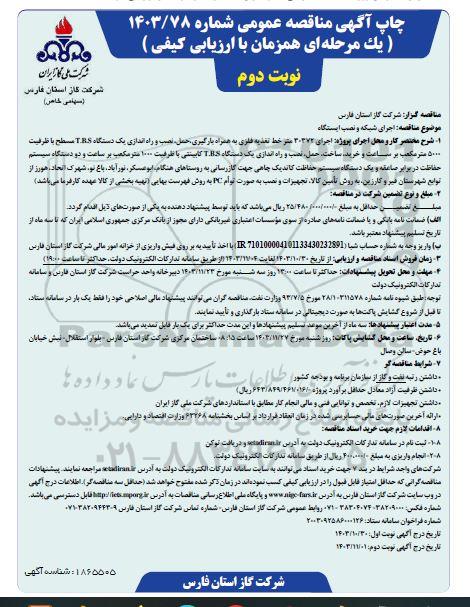 چاپ آگهی مناقصه عمومی شماره ۱۴۰۳/۷۸
( یك مرحله‌ای همزمان با ارزیابی کیفی )
نوبت دوم
شرکت ملی گاز ایران
شرکت گاز استان فارس
(سهامی خاص)
مناقصه گزار: شرکت گاز استان فارس
موضوع مناقصه: اجرای شبکه و نصب ایستگاه
۱- شرح مختصر کار و محل اجرای پروژه: اجرای ۳۰۳۷۲ متر خط تغذیه فلزی به همراه بارگیری، حمل، نصب و راه اندازی یک دستگاه T.B.S مسطح با ظرفیت
۵۰۰۰ متر مکعب بر ساعت و خرید، ساخت، حمل، نصب و راه اندازی یک دستگاه T.B.S کابینتی با ظرفیت ۱۰۰۰ مترمکعب بر ساعت و دو دستگاه سیستم
حفاظت در برابر صاعقه و یک دستگاه سیستم حفاظت کاتدیک چاهی جهت گازرسانی به روستاهای هنگام، ابوعسکر، نورآباد، باغ نو، شهرک اتحاد، هورز از
توابع شهرستان قیر و کارزین، به روش تأمین کالا، تجهیزات و نصب به صورت توأم PC به روش فهرست بهایی (تهیه بخشی از کالا عهده کارفرما می‌باشد)
۲- مبلغ و نوع تضمین شرکت در مناقصه:
مبلغ تضمین حداقل به مبلغ ۲۵/۴۸۰/۰۰۰/۰۰۰ ریال می‌باشد که باید توسط پیشنهاد دهنده به یکی از صورت‌های ذیل اقدام گردد.
الف) ضمانت نامه بانکی و یا ضمانت نامه‌های صادره از سوی مؤسسات اعتباری غیربانکی دارای مجوز از بانک مرکزی جمهوری اسلامی ایران که تا سه ماه از
تاریخ تسلیم پیشنهاد معتبر باشد.
ب) واریز وجه به شماره حساب شبا (IR 710100004101133430232891) با اخذ تأییدیه بر روی فیش واریزی از خزانه امور مالی شرکت گاز استان فارس
۳- زمان فروش اسناد مناقصه و ارزیابی: از تاریخ ۱۴۰۳/۱۰/۳۰ لغایت ۱۴۰۳/۱۱/۰۴ (از طریق سامانه تدارکات الکترونیک دولت، حداکثر تا ساعت ۱۹:۰۰)
۴- مهلت و محل تحویل پیشنهادات: حداکثر تا ساعت ۱۳:۰۰ روز سه شنبه مورخ ۱۴۰۳/۱۱/۲۳ دبیرخانه واحد حراست شرکت گاز استان فارس و سامانه
تدارکات الکترونیک دولت
توجه: طبق شیوه نامه شماره ۲۸/۱-۳۱۱۵۷۸ مورخ ۹۳/۷/۵ وزارت نفت، مناقصه گران می‌توانند پیشنهاد مالی اصلاحی خود را فقط یک بار در سامانه ستاد،
تا قبل از شروع گشایش پاکت‌ها به صورت دیجیتالی در سامانه ستاد بارگذاری و تأیید نمایند.
۵- مدت اعتبار پیشنهادها: سه ماه از آخرین موعد تسلیم پیشنهادها و این مدت حداکثر برای یک بار قابل تمدید می‌باشد.
۶- تاریخ، ساعت و محل گشایش پاکات: روز شنبه مورخ ۱۴۰۳/۱۱/۲۷ ساعت ۰۸:۱۵ ساختمان مرکزی شرکت گاز استان فارس - بلوار استقلال- نبش خیابان
باغ حوض- سالن وصال
۷- شرایط مناقصه گر
-داشتن رتبه نفت و گاز از سازمان برنامه و بودجه کشور
-داشتن ظرفیت آزاد معادل حداقل برآورد پروژه (۶۴۳/۸۴۹/۴۶۱/۰۱۶ ریال)
-داشتن تجهیزات لازم، تخصص و توانایی فنی و مالی انجام کار مطابق با استانداردهای شرکت ملی گاز ایران
-ارائه آخرین صورت‌های مالی حسابرسی شده در زمان انعقاد قرارداد بر اساس بخشنامه ۶۳۲۶۸ وزارت اقتصاد و دارایی.
۸- اقدامات لازم جهت خرید اسناد مناقصه:
۸-۱- ثبت نام در سامانه تدارکات الکترونیک دولت به آدرس setadiran.ir و دریافت توکن
۸-۲- انجام واریزی به مبلغ ۴۰۰,۰۰۰/- ریال از طریق سامانه تدارکات الکترونیک دولت.
شرکت‌های واجد شرایط در بند ۷ جهت خرید اسناد می‌توانند به سایت سامانه تدارکات الکترونیک دولت به آدرس setadiran.ir مراجعه نمایند. پیشنهادات
مناقصه‌گرانی که حداقل امتیاز قابل قبول را در ارزیابی کیفی کسب نموده‌اند در زمان ذکر شده مفتوح خواهد شد (حداقل سه مناقصه‌گر). اطلاعات درج آگهی
در وب سایت شرکت گاز استان فارس به آدرس www.nigc-fars.ir و پایگاه ملی اطلاع‌رسانی مناقصات به آدرس http://iets.mporg.ir قابل دسترسی می‌باشد.
روابط عمومی شرکت گاز استان فارس
شماره فراخوان سامانه ستاد: ۲۰۰۳۰۹۲۵۸۶۰۰۰۱۲۶
تاریخ درج آگهی نوبت اول: ۱۴۰۳/۱۰/۳۰
تاریخ درج آگهی نوبت دوم: ۱۴۰۳/۱۱/۰۱
شناسه آگهی : ۱۸۶۵۵۰۵
شرکت گاز استان فارس